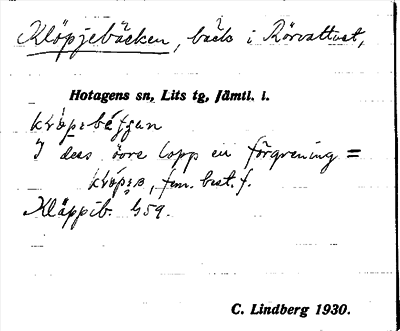 Klöpjebäcken, bäck i Rörvattnet,
Hotagens sn, Lits tg, Jämtl. l.
I dess övre lopp en förgrening =
fem. best. f.
Kläppib. G59.
C. Lindberg 1930.